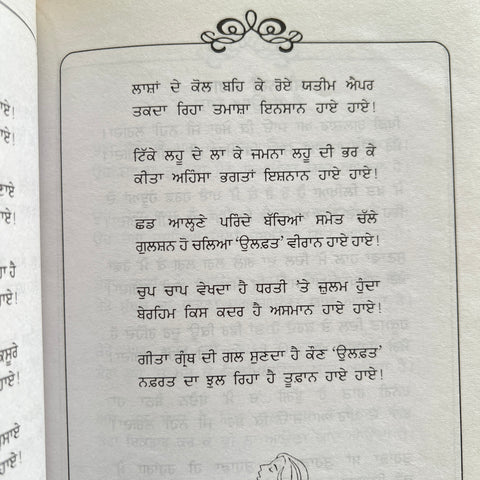 ਲਾਸ਼ਾਂ ਦੇ ਕੋਲ ਬਹਿ ਕੇ ਰੋਏ ਯਤੀਮ ਐਪਰ
ਤਕਦਾ ਰਿਹਾ ਤਮਾਸ਼ਾ ਇਨਸਾਨ ਹਾਏ ਹਾਏ!
ਟਿੱਕੇ ਲਹੂ ਦੇ ਲਾ ਕੇ ਜਮਨਾ ਲਹੂ ਦੀ ਭਰ ਕੇ
ਕੀਤਾ ਅਹਿੰਸਾ ਭਗਤਾਂ ਇਸ਼ਨਾਨ ਹਾਏ ਹਾਏ!
ਛਡ ਆਲ੍ਹਣੇ ਪਰਿੰਦੇ ਬੱਚਿਆਂ ਸਮੇਤ ਚੱਲੇ
ਗੁਲਸ਼ਨ ਹੋ ਚਲਿਆ ‘ਉਲਫ਼ਤ’ ਵੀਰਾਨ ਹਾਏ ਹਾਏ!
ਚੁਪ ਚਾਪ ਵੇਖਦਾ ਹੈ ਧਰਤੀ ’ਤੇ ਜ਼ੁਲਮ ਹੁੰਦਾ
ਬੇਰਹਿਮ ਕਿਸ ਕਦਰ ਹੈ ਅਸਮਾਨ ਹਾਏ ਹਾਏ!
ਗੀਤਾ ਗ੍ਰੰਥ ਦੀ ਗਲ ਸੁਣਦਾ ਹੈ ਕੌਣ ‘ਉਲਫ਼ਤ’
ਨਫ਼ਰਤ ਦਾ ਝੁਲ ਰਿਹਾ ਹੈ ਤੂਫ਼ਾਨ ਹਾਏ ਹਾਏ!